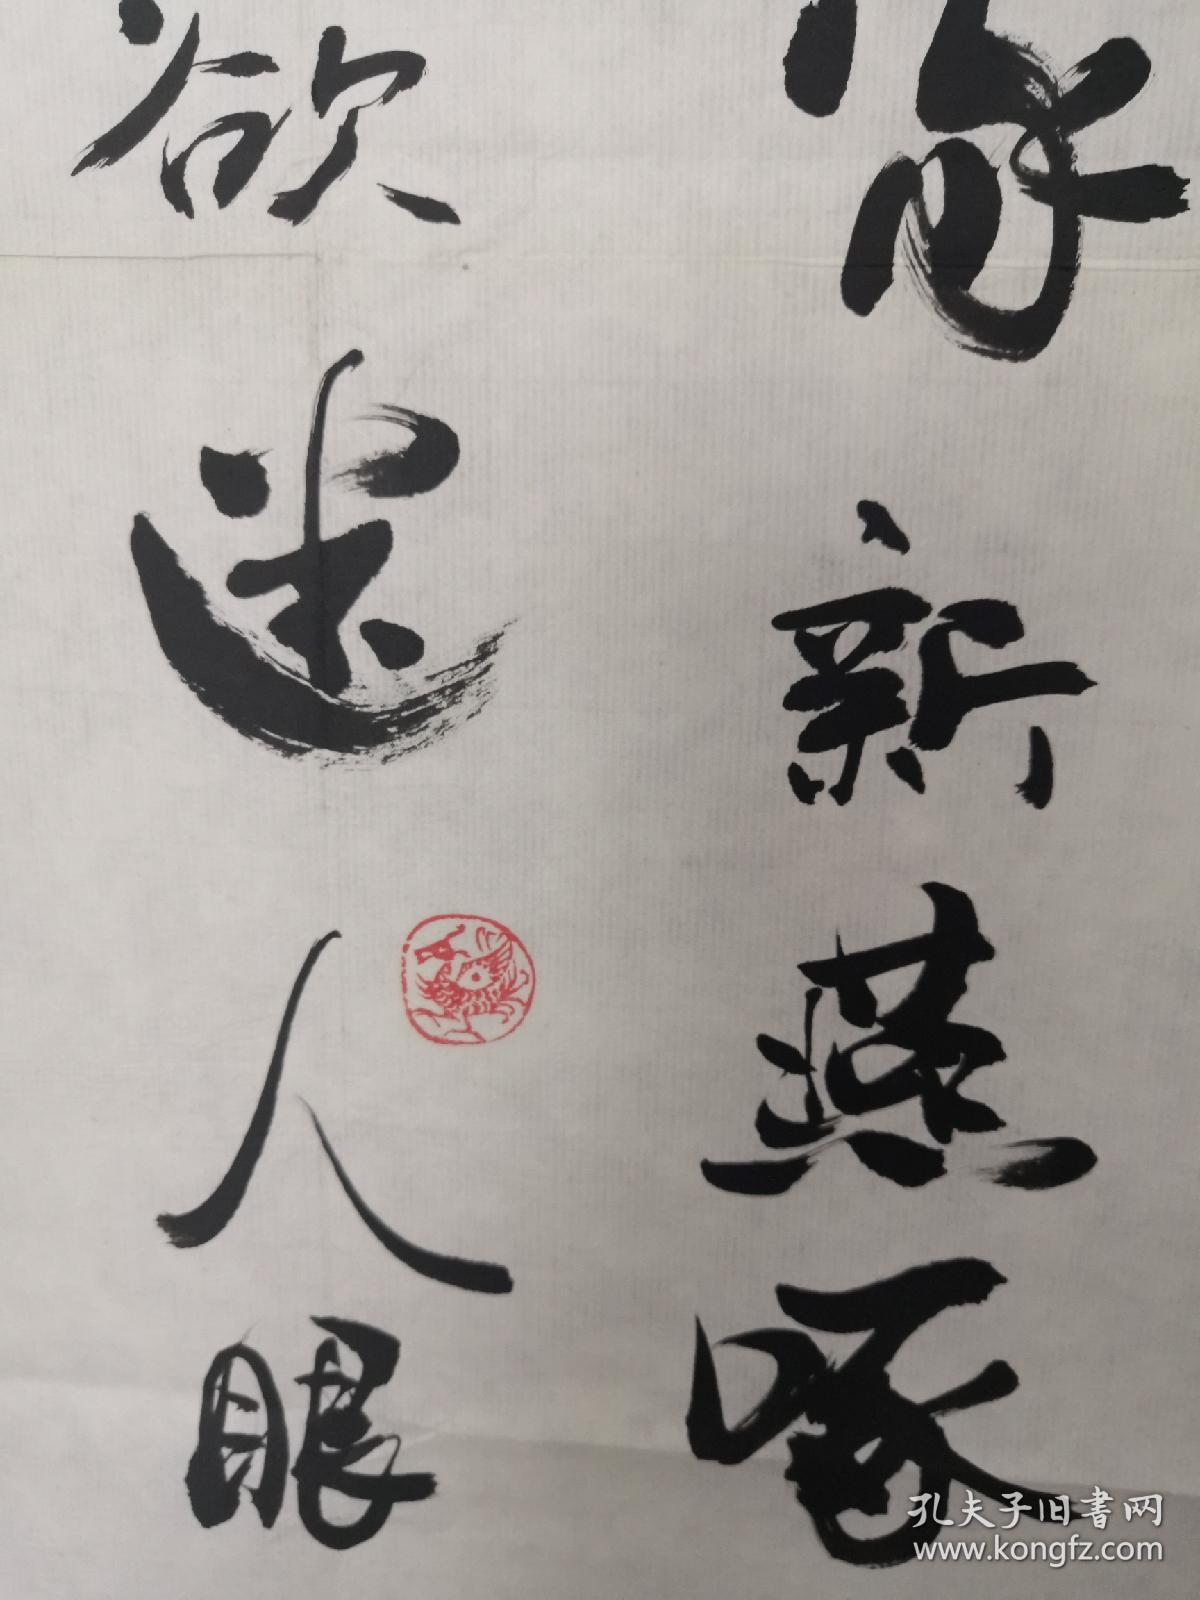 家新燕啄
欲迷人眼
孔夫子旧書网
www.kongfz.com